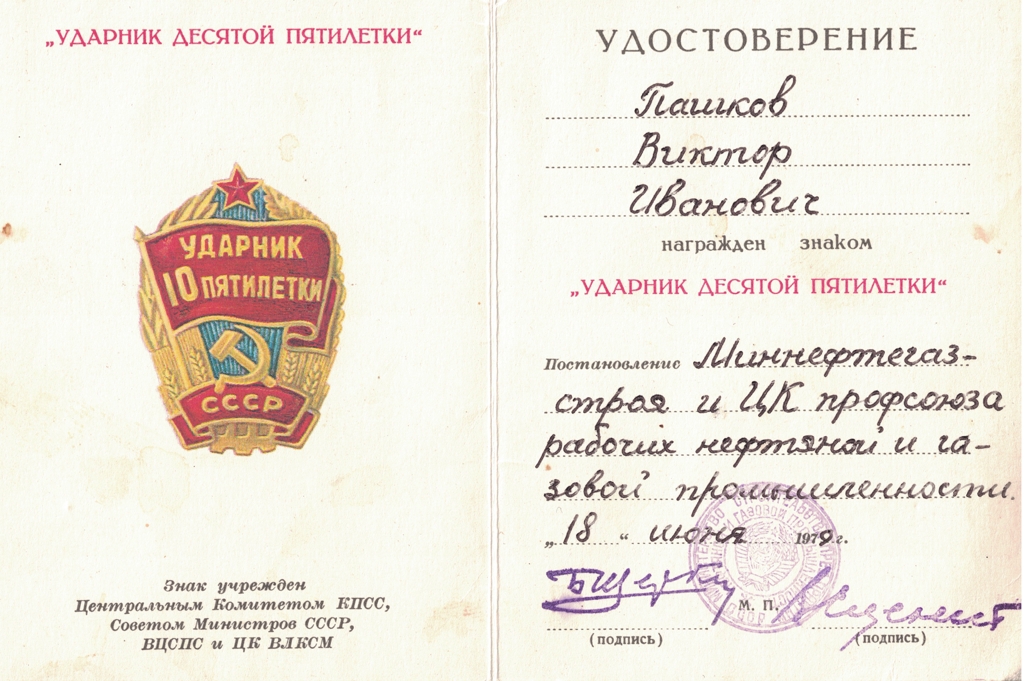 „УДАРНИК ДЕСЯТОЙ ПЯТИЛЕТКИ“
УДАРНИК
10 ПЯТИЛЕТКИ
СССР
Знак учрежден
Центральным Комитетом КПСС,
Советом Министров СССР,
ВЦСПС и ЦК ВЛКСМ
УДОСТОВЕРЕНИЕ
Пашков
Виктор
Иванович
награжден знаком
„УДАРНИК ДЕСЯТОЙ ПЯТИЛЕТКИ“
Постановление Миннефтегаз-
строя и ЦК профсоюза
рабочих нефтяной и га-
зовой промышленности.
„18“ июня 1979 г.
М. П.
(подпись) (подпись)